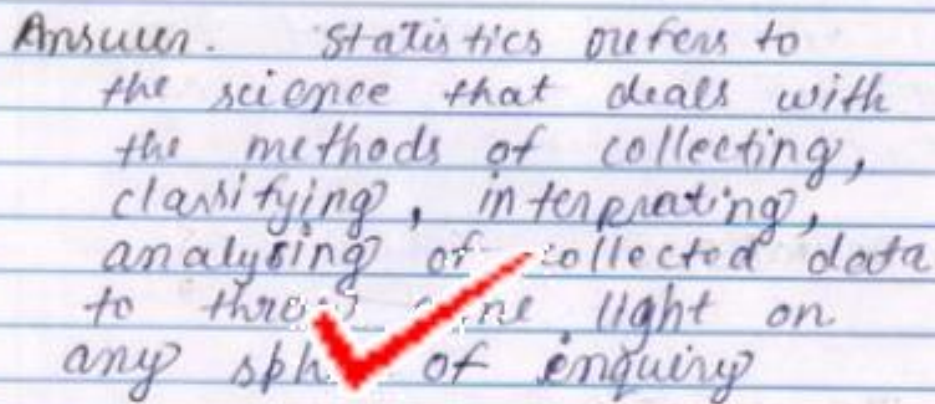 Answer. Statistics refers to
the science that deals with
the methods of collecting,
classifying, interprating,
analysing of collected data
to light on
any of enquiry